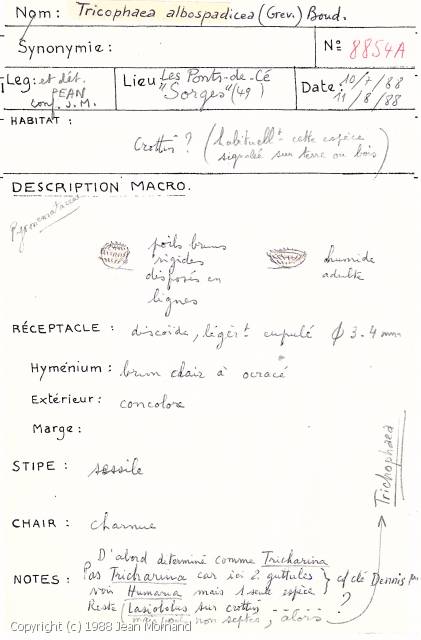 Nom: Tricophaea albospadicea (Grev.) Boud.
Synonymie:
No 8854A
Leg: et dét. JEAN conf. J.M.
Lieu Les Ponts-de-Cé "Sorges" (49)
Date: 10/7/88
11/8/88
HABITAT :
Crottin ? (habituellt cette espèce
signalée sur terre ou bois)
DESCRIPTION MACRO.
poils bruns
rigides
disposés en
lignes
humide
adulte
RÉCEPTACLE : discoïde, légèrt cupulé ϕ 3-4 mm
Hyménium : brun clair à ocracé
Extérieur : concolore
Marge :
STIPE : sessile
Trichophaea
CHAIR : charnue
D'abord determiné comme Tricharina
NOTES : Pas Tricharina car ici 2 guttules
voir Humaria mais 1 seule espèce } cf clé Dennis
Reste Lasiobolus sur crottin ---- ?
mais poils non septés, alors
Copyright (c) 1988 Jean Mornand